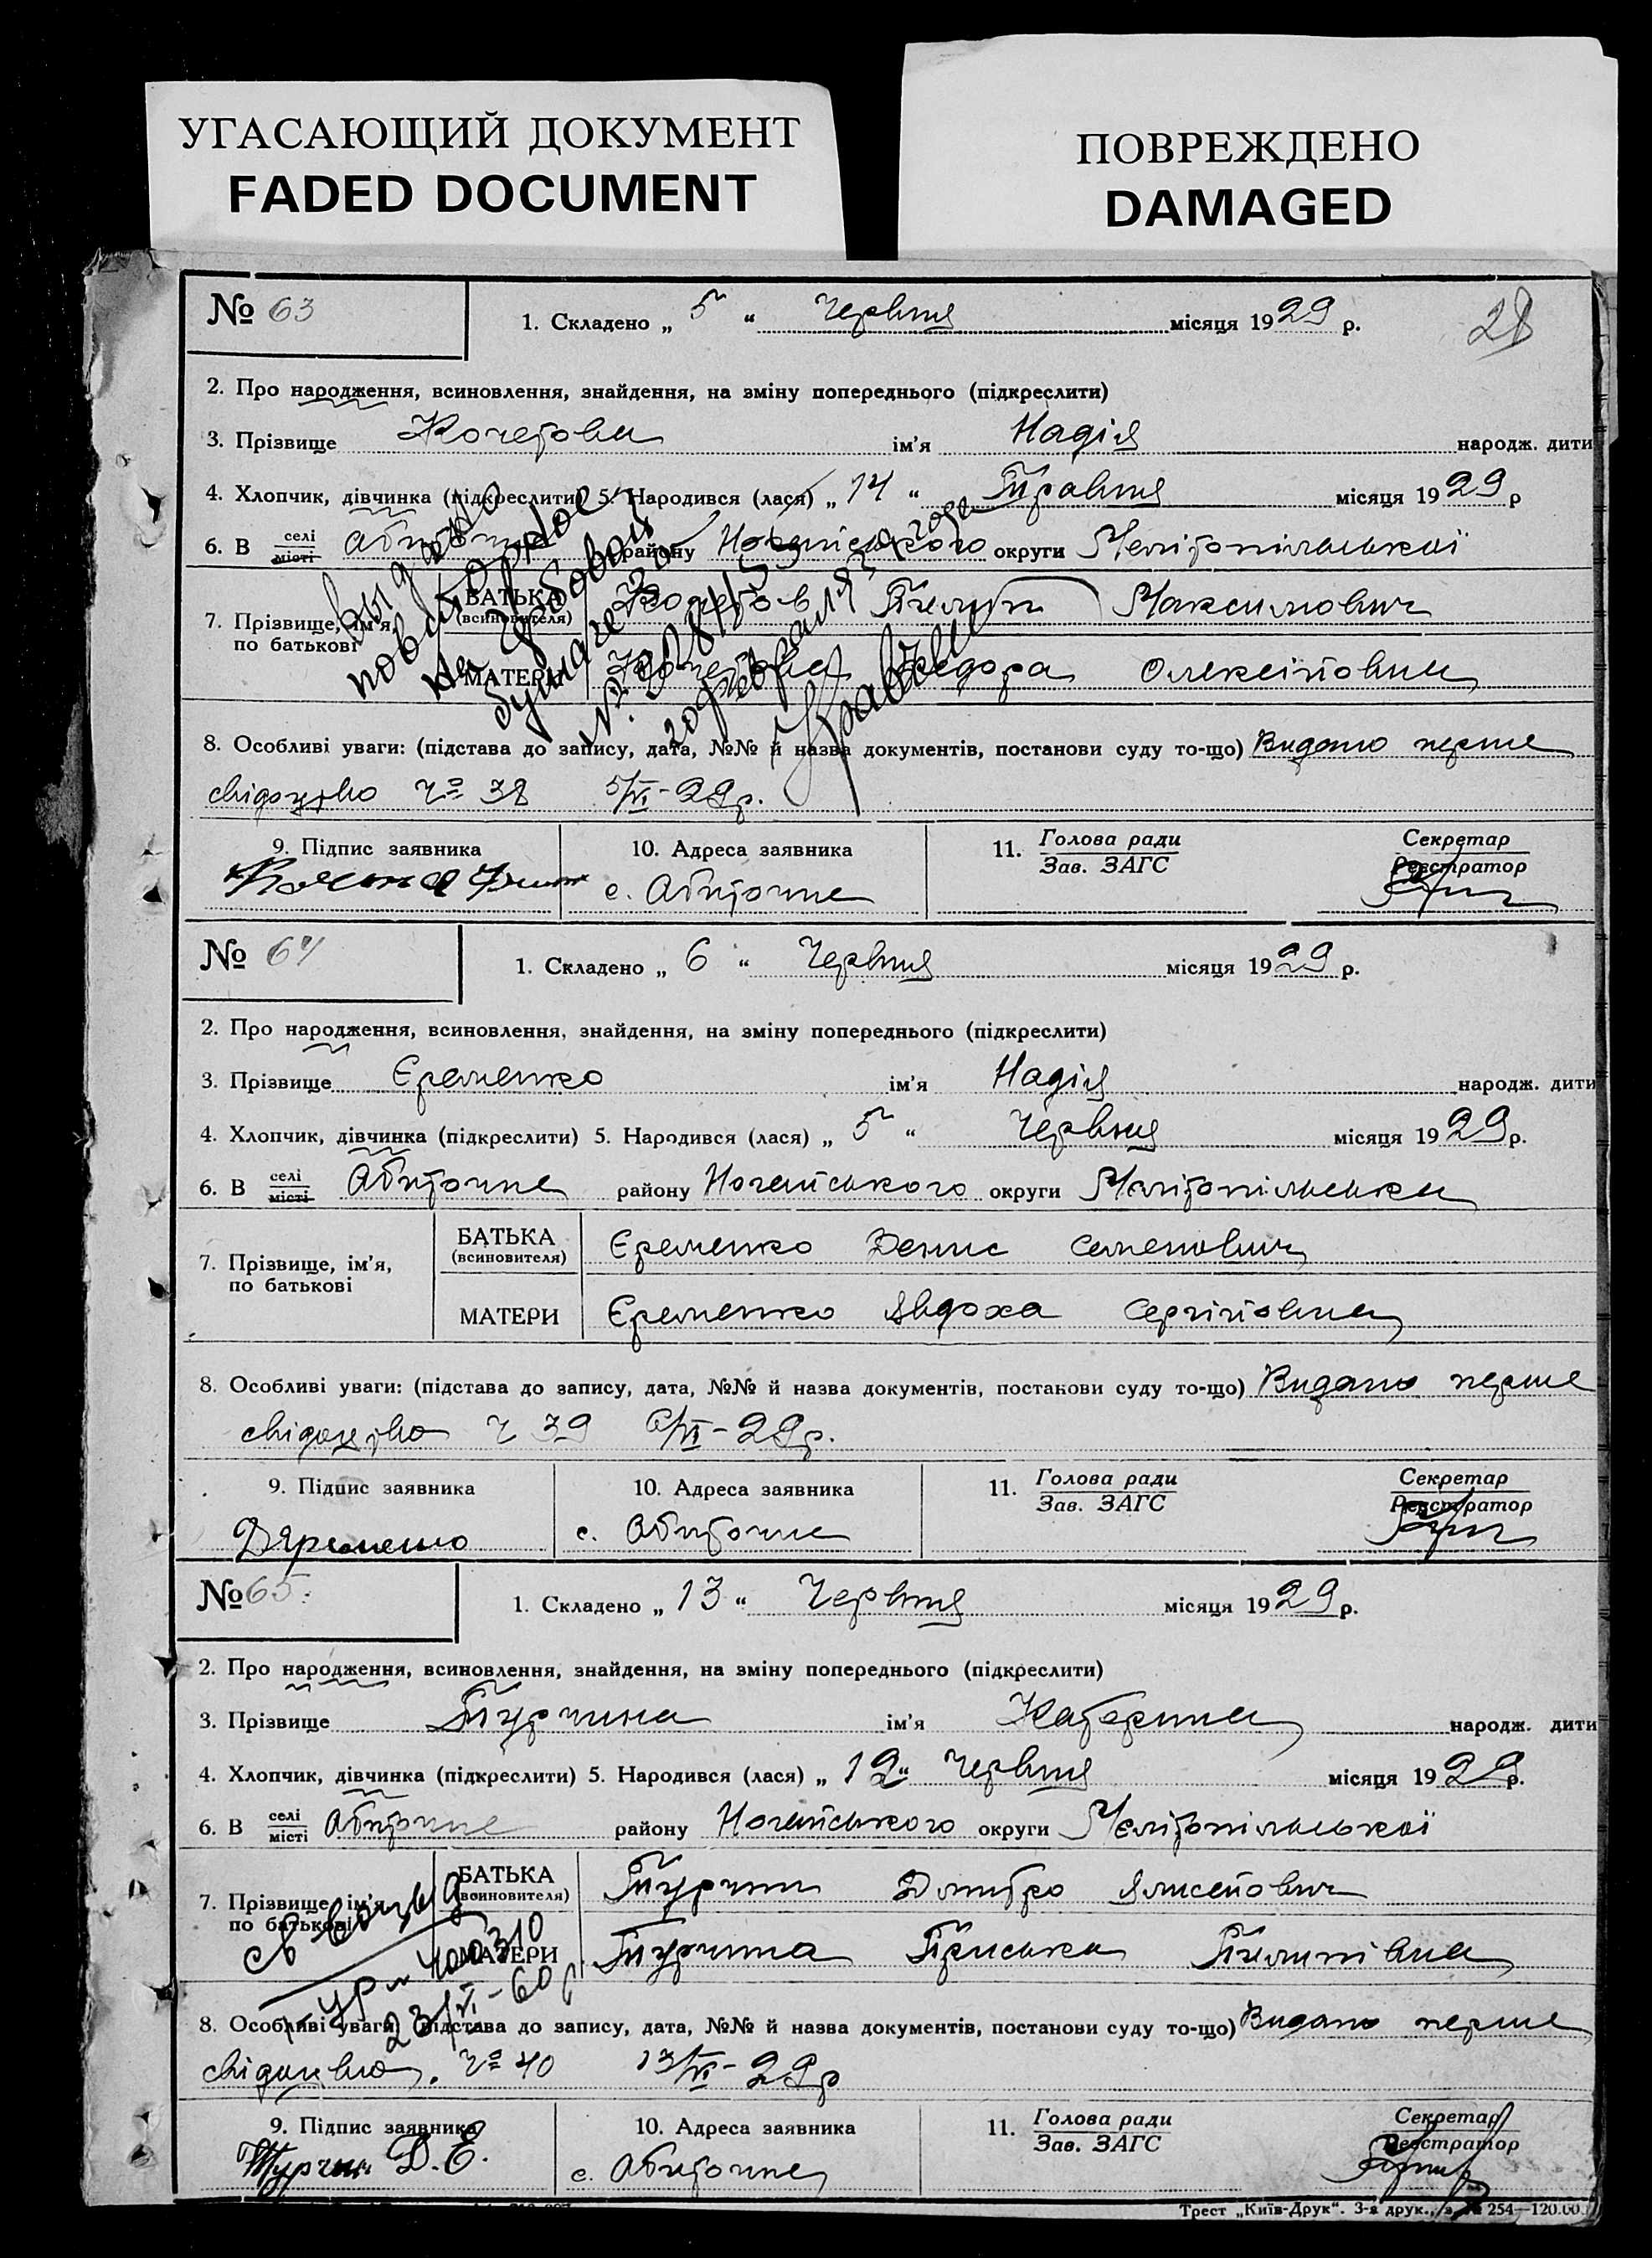 УГАСАЮЩИЙ ДОКУМЕНТ
FADED DOCUMENT
ПОВРЕЖДЕНО
DAMAGED
28
№ 63
1. Складено „ 5 “ Червня місяця 1929 р.
2. Про народження, всиновлення, знайдення, на зміну попереднього (підкреслити)
3. Прізвище Кочетова ім'я Надія народж. дити
4. Хлопчик, дівчинка (підкреслити) 5. Народився (лася) „ 14 “ Травня місяця 1929 р
6. В селі місті Абиточне району Ногайського округи Мелітопільської
7. Прізвище, ім'я, по батькові
БАТЬКА (всиновителя) Кочетов Пилип Максимович
МАТЕРИ Кочетова Федора Олексіївна
Выдано
повторное
на гербовой
бумаге
8. Особливі уваги: (підстава до запису, дата, №№ й назва документів, постанови суду то-що) Видано перше
свідоцтво ч° 38 5/VI-29р.
9. Підпис заявника
10. Адреса заявника
с. Абиточне
11. Голова ради
Зав. ЗАГС
Секретар
Реєстратор
№ 64
1. Складено „ 6 “ Червня місяця 1929 р.
2. Про народження, всиновлення, знайдення, на зміну попереднього (підкреслити)
3. Прізвище Єременко ім'я Надія народж. дити
4. Хлопчик, дівчинка (підкреслити) 5. Народився (лася) „ 5 “ Червня місяця 1929 р.
6. В селі місті Абиточне району Ногайського округи Мелітопільська
7. Прізвище, ім'я, по батькові
БАТЬКА (всиновителя) Єременко Денис Семенович
МАТЕРИ Єременко Явдоха Сергіївна
8. Особливі уваги: (підстава до запису, дата, №№ й назва документів, постанови суду то-що) Видано перше
свідоцтво ч 39 6/VI-29р.
9. Підпис заявника
10. Адреса заявника
с. Абиточне
11. Голова ради
Зав. ЗАГС
Секретар
Реєстратор
№ 65.
1. Складено „ 13 “ Червня місяця 1929 р.
2. Про народження, всиновлення, знайдення, на зміну попереднього (підкреслити)
3. Прізвище Турчина ім'я Катерина народж. дити
4. Хлопчик, дівчинка (підкреслити) 5. Народився (лася) „ 12 “ Червня місяця 1929 р.
6. В селі місті Абиточне району Ногайського округи Мелітопільської
7. Прізвище, ім'я, по батькові
БАТЬКА (всиновителя) Турчин Дмитро Ялисейович
МАТЕРИ Турчина Приська Пилипівна
23/VI-60р
8. Особливі уваги: (підстава до запису, дата, №№ й назва документів, постанови суду то-що) Видано перше
свідоцтво. ч° 40 13/VI-29р
9. Підпис заявника
Турчин Д.Е.
10. Адреса заявника
с. Абиточне
11. Голова ради
Зав. ЗАГС
Секретар
Реєстратор
Трест „Київ-Друк“. 3-я друк., з. № 254—120.00